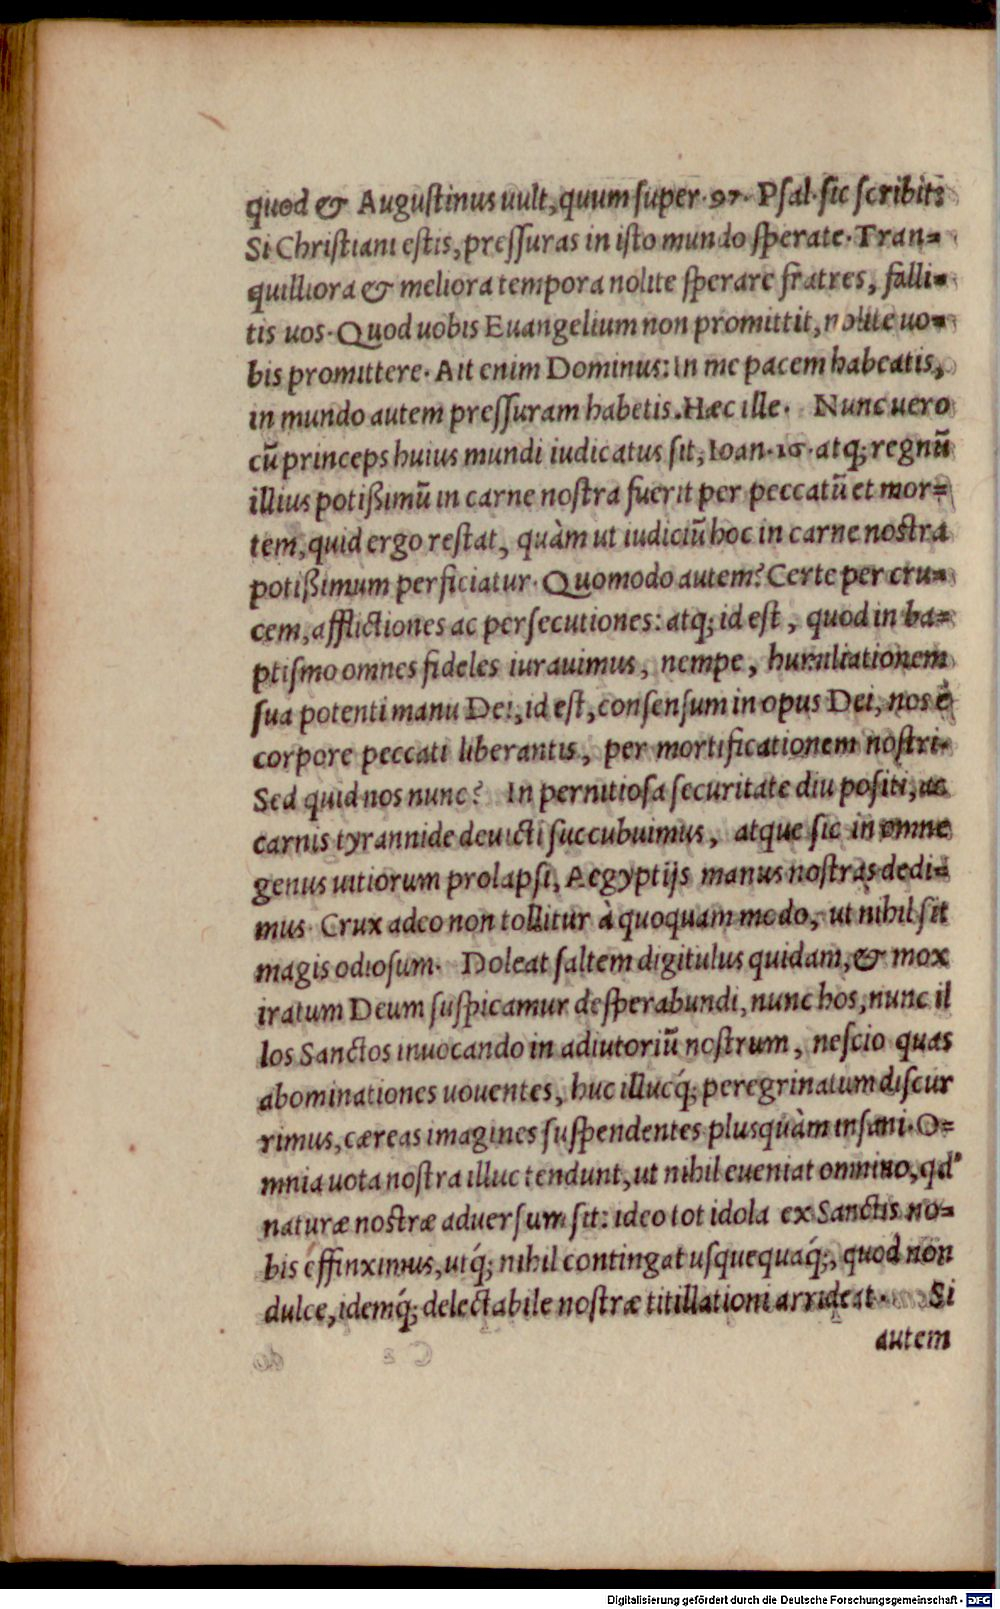 quod & Augustinus uult, quum super. 97. Psal. sic scribit:
Si Christiani estis, pressuras in isto mundo sperate. Tran=
quilliora & meliora tempora nolite sperare fratres, falli=
tis uos. Quod uobis Euangelium non promittit, nolite uo=
bis promittere. Ait enim Dominus: In me pacem habeatis,
in mundo autem pressuram habetis. Hæc ille. Nunc uero
cũ princeps huius mundi iudicatus sit, Ioan. 16. atq; regnũ
illius potißimũ in carne nostra fuerit per peccatũ et mor=
tem, quid ergo restat, quàm ut iudiciũ hoc in carne nostra
potißimum perficiatur. Quomodo autem? Certe per cru=
cem, afflictiones ac persecutiones: atq; id est, quod in ba=
ptismo omnes fideles iurauimus, nempe, humiliationem
sua potenti manu Dei, id est, consensum in opus Dei, nos è
corpore peccati liberantis, per mortificationem nostri.
Sed quid nos nunc? In pernitiosa securitate diu positi, ac
carnis tyrannide deuicti succubuimus, atque sic in omne
genus uitiorum prolapsi, Aegyptijs manus nostras dedi=
mus. Crux adeo non tollitur à quoquam modo, ut nihil sit
magis odiosum. Doleat saltem digitulus quidam, & mox
iratum Deum suspicamur desperabundi, nunc hos, nunc il
los Sanctos inuocando in adiutoriũ nostrum, nescio quas
abominationes uouentes, huc illucq́; peregrinatum discur
rimus, cæreas imagines suspendentes plusquàm insani. O=
mnia uota nostra illuc tendunt, ut nihil eueniat omnino, qd'
naturæ nostræ aduersum sit: ideo tot idola ex Sanctis no=
bis effinximus, utq́; nihil contingat usquequaq́;, quod non
dulce, idemq́; delectabile nostræ titillationi arrideat. Si
autem
Digitalisierung gefördert durch die Deutsche Forschungsgemeinschaft - DFG